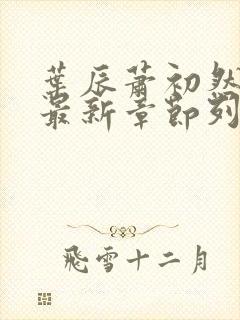 葉辰蕭初然
最新章節列
飛雪十二月